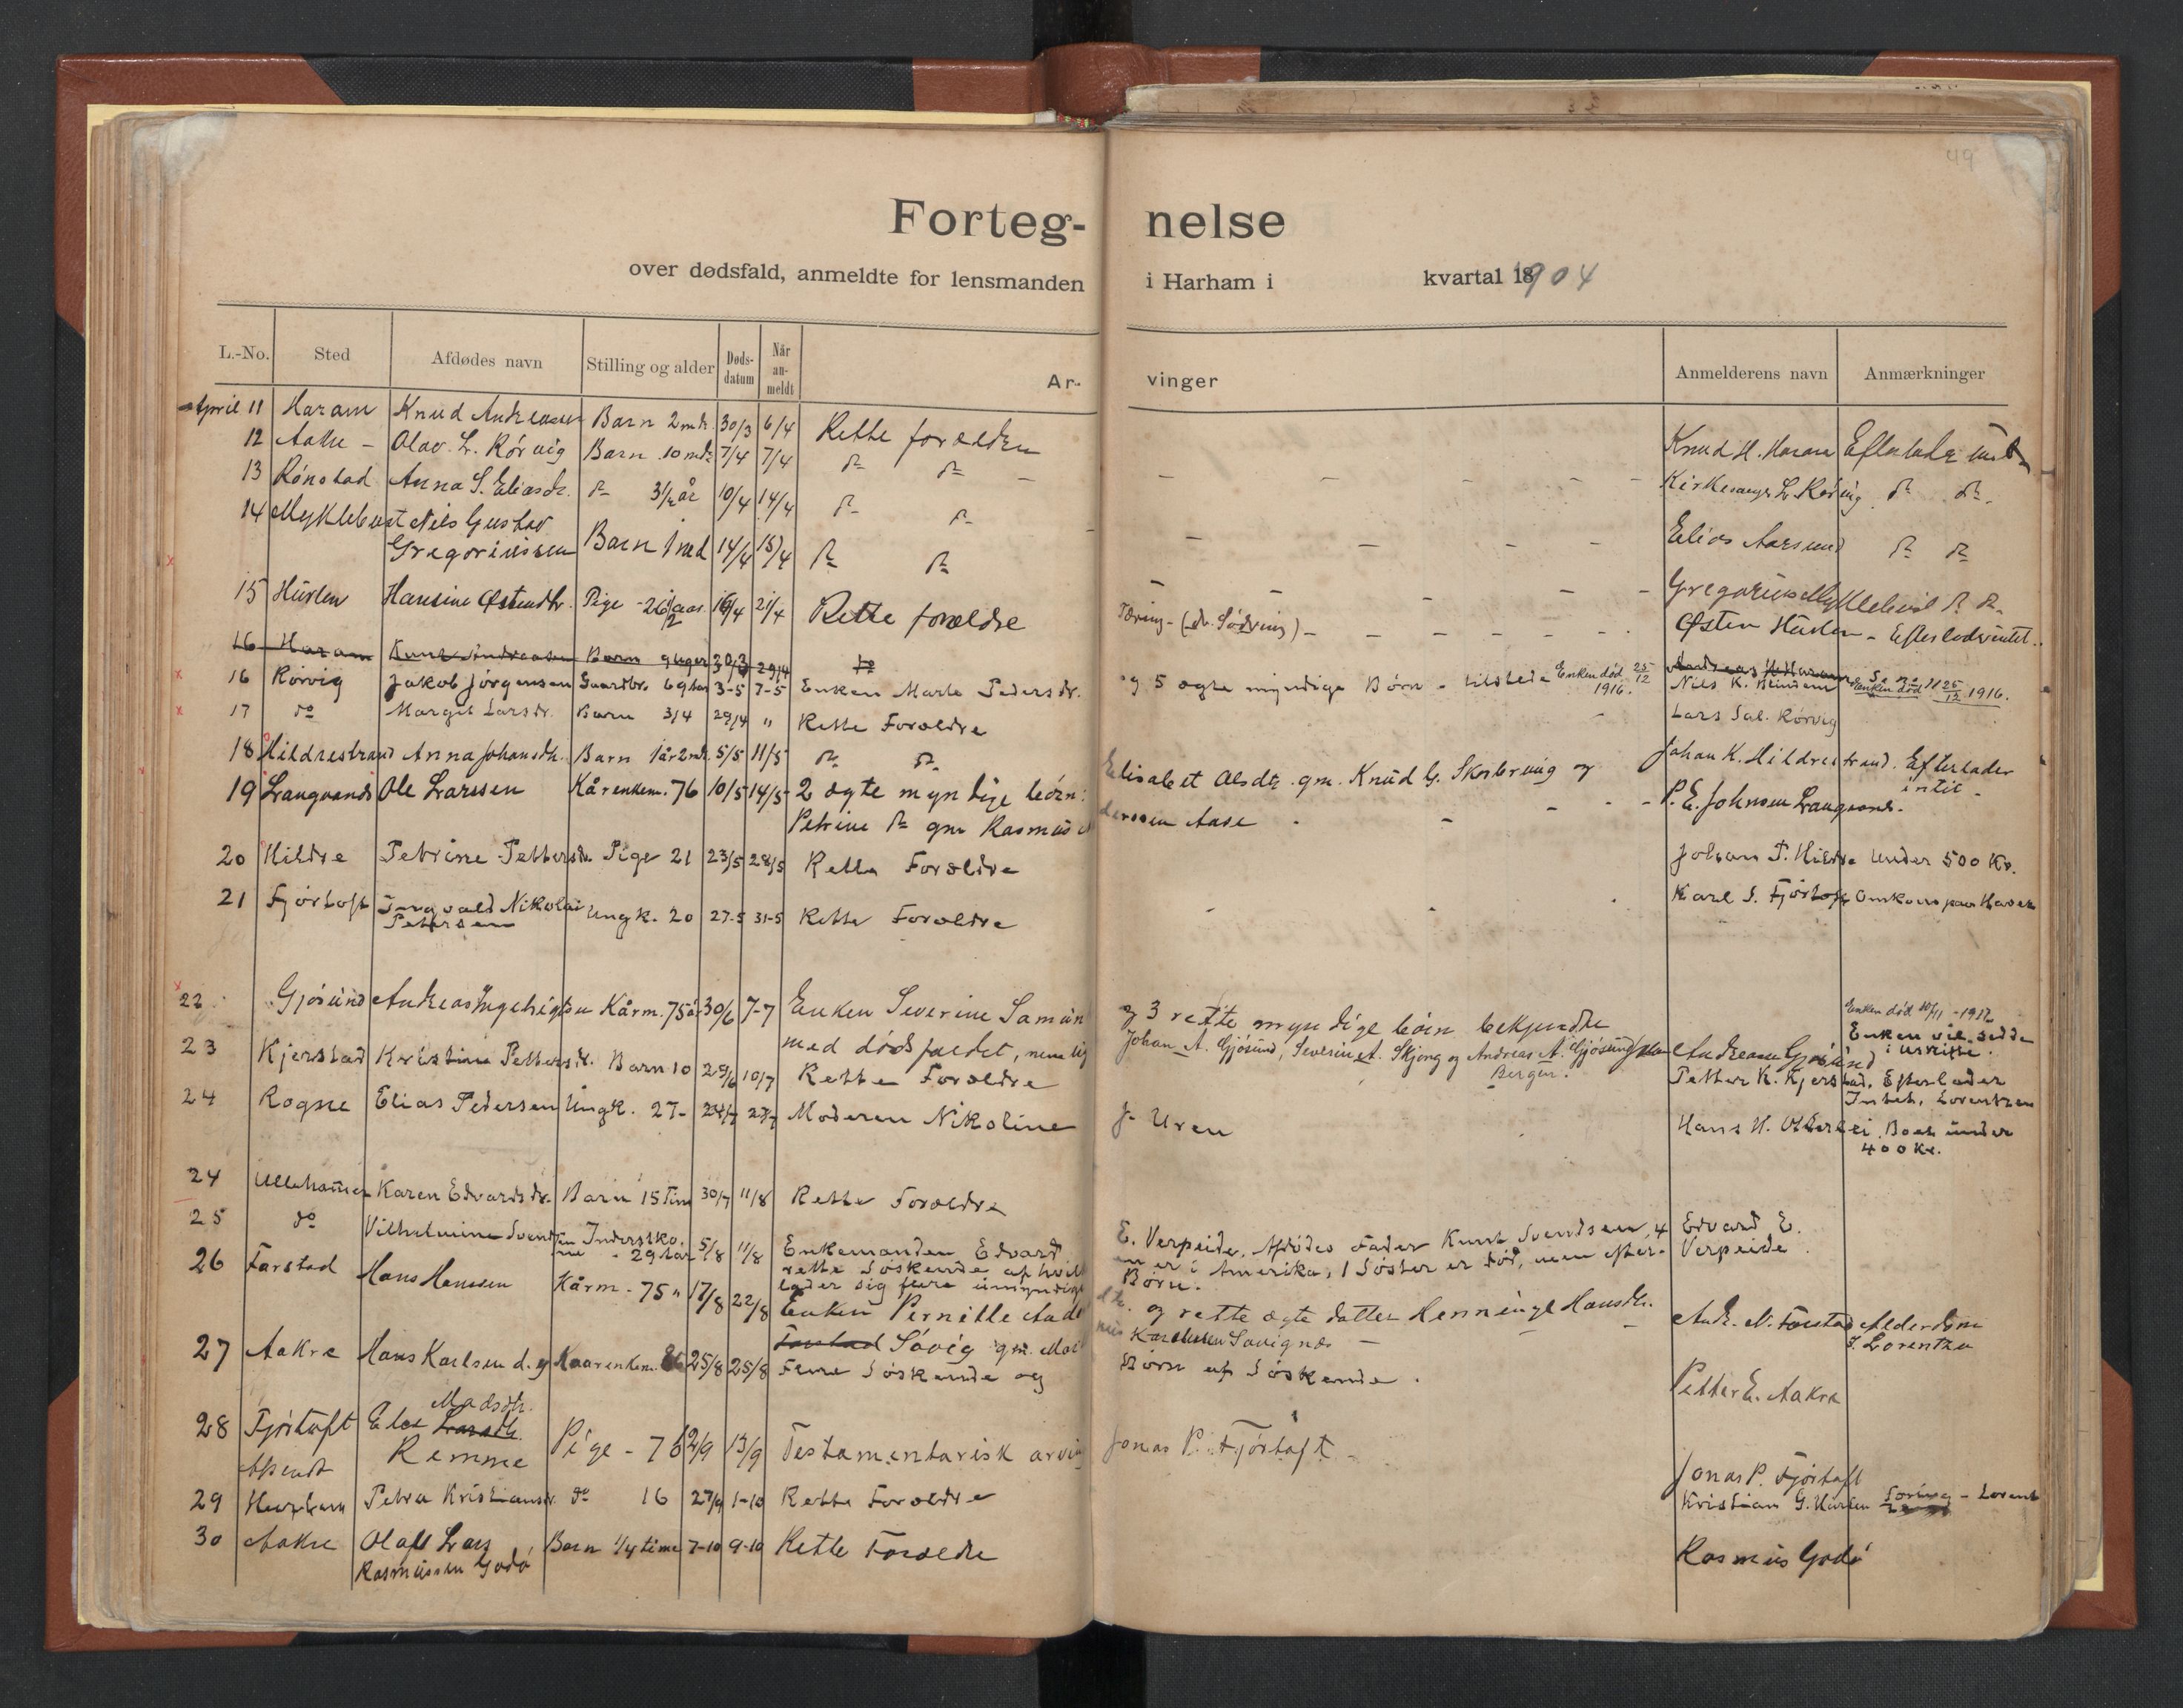 49
Forteg- nelse
over dødsfald, anmeldte for lensmanden i Harham i kvartal 18904
L.-No. Sted Afdødes navn Stilling og alder Døds-datum Når an-meldt Ar- vinger Anmelderens navn Anmærkninger
April 11 Haram Knud Andreassen Barn 2 mdr. 30/3 6/4 Rette forældre Knud H. Haram Efterlader intet
12 Aakre - Olav L. Rørvig Barn 10 mdr 7/4 7/4 do do Kirkesanger L. Rørvig do do
13 Rønstad Anna S. Eliasdr. do 3 1/2 år 10/4 14/4 do do Elias Aarsund do do
14 Myklebust Nils Gustav
Gregoriussen Barn 1 md 14/4 15/4 do do Gregorius Myklebust do do
15 Hurlen Hansine Østendtr. Pige - 26 1/2 aar. 16/4 21/4 Rette forældre Tæring - Østen Hurlen - Efterlod intet.
16 Haram Knut Andreasen Barn 9 uger 30/3 29/4 do Andreas H. Haram
16 Rørvig Jakob Jørgensen Gaardbr. 69 aar 3-5 7-5 Enken Marte Pedersdr. og 5 ægte myndige Børn - tilstede Enken død 25/12 1916. Nils K. Enken død 25/12 1916.
17 do Margit Larsdr. Barn 3/4 29/4 " Rette Forældre Lars Sal. Rørvig
18 Hildrestrand Anna Johansdtr. Barn 1 år 2 mdr. 5/5 11/5 do do Johan K. Hildrestrand. Efterlader
intet -
19 Langvands Ole Larssen Kårenkem. 76 10/5 14/5 2 ægte myndige børn: Elisabet Olsdtr. gm. Knud G. og P. E. Johnsen
Petrine do gm Rasmus Anderssen Aase
20 Hildre Petrine Pettersdr. Pige 21 23/5 28/5 Rette Forældre Johan P. Hildre Under 500 Kr.
21 Fjørtoft Ingvald Nikolai
Pettersen Ungk. 20 27-5 31-5 Rette Forældre Karl S. Fjørtoft Omkom paa Havet
22 Gjøsund Andreas Ingebrigtsen Kårm. 75 år 30/6 7-7 Enken Severine og 3 rette myndige børn bekjendte Andreas Gjøsund Enken død 10/11 - 1912
Enken vil sidde
i uskifte.
med dødsfaldet, nemlig Johan A. Gjøsund, Severin A. Skjong og Andreas A. Gjøsund
Bergen.
23 Kjerstad Kristine Pettersdr. Barn 10 29/6 10/7 Rette Forældre Petter K. Kjerstad. Efterlader
Intet, Lorentzen
24 Rogne Elias Pedersen Ungk. 27 - 24/7 27/7 Moderen Nikoline J. Uren Hans H. Otterlei Boet under
400 Kr.
24 Ullahammer Karen Edvardsdr. Barn 15 Tim 30/7 11/8 Rette Forældre
25 do Vilhelmine Svendsen Inderstko-
ne - 29 aar 5/8 11/8 Enkemanden Edvard E. Verpeide, Afdødes Fader Knut Svendsen, 4 Edvard E.
rette Søskende af hvilk en er i Amerika, 1 Søster er død, men efter- Verpeide
lader sig flere umyndige Børn.
26 Farstad Hans Hanssen Kårm - 75 " 17/8 22/8 Enken Pernille og rette ægte datter Henninge Hansdtr. Andr. N. Farstad Alderdom
Farstad Søvig gm. Søvignes - J. Lorentzen
27 Aakre Hans Karlsen d. y Kaarenkem. 86 25/8 25/8 Flere Søskende og Børn af Søskende. Petter E. Aakre
28 Fjørtoft Else Larsdtr. Madsdtr.
Remme Pige - 76 2/9 13/9 Testamentarisk arving Jonas P. Fjørtoft Jonas P. Fjørtoft
29 Petra Kristiansdr. do 16 27/9 1-10 Rette Forældre Kristian G. Hurlen Tæring - Lorent
30 Aakre Olaf Lars
Rasmussen Godø Barn 1/4 time 7-10 9-10 Rette Forældre Rasmus Godø